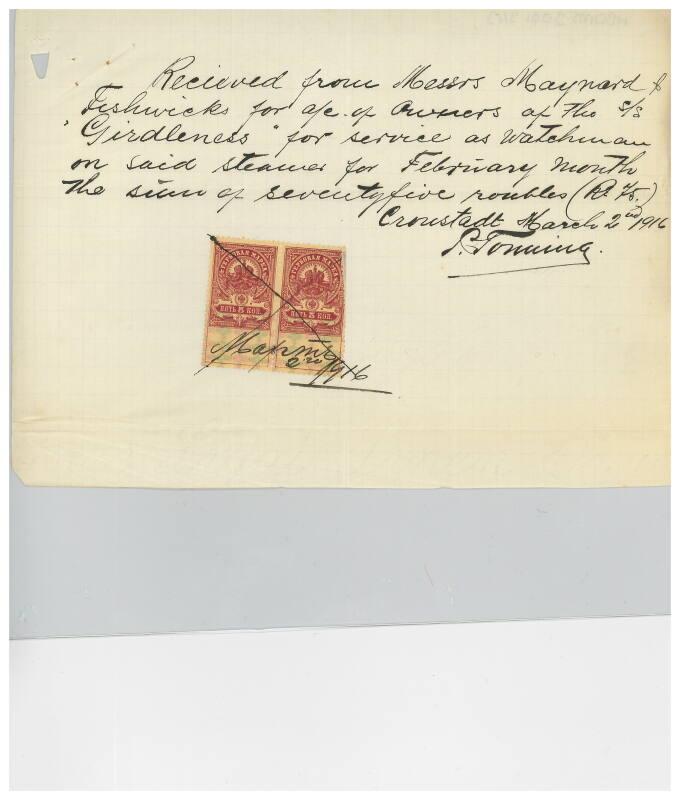 Recieved from Messrs Maynard &
Fishwicks for a/c. of Owners of the s/s
"Girdleness" for service as watchman
on said steamer for February month
the sum of seventyfive roubles (R. 75.)
Cronstadt March 2nd 1916
ГЕРБОВАЯ МАРКА ГЕРБОВАЯ МАРКА
ПЯТЬ 5 КОП. ПЯТЬ 5 КОП.
1916